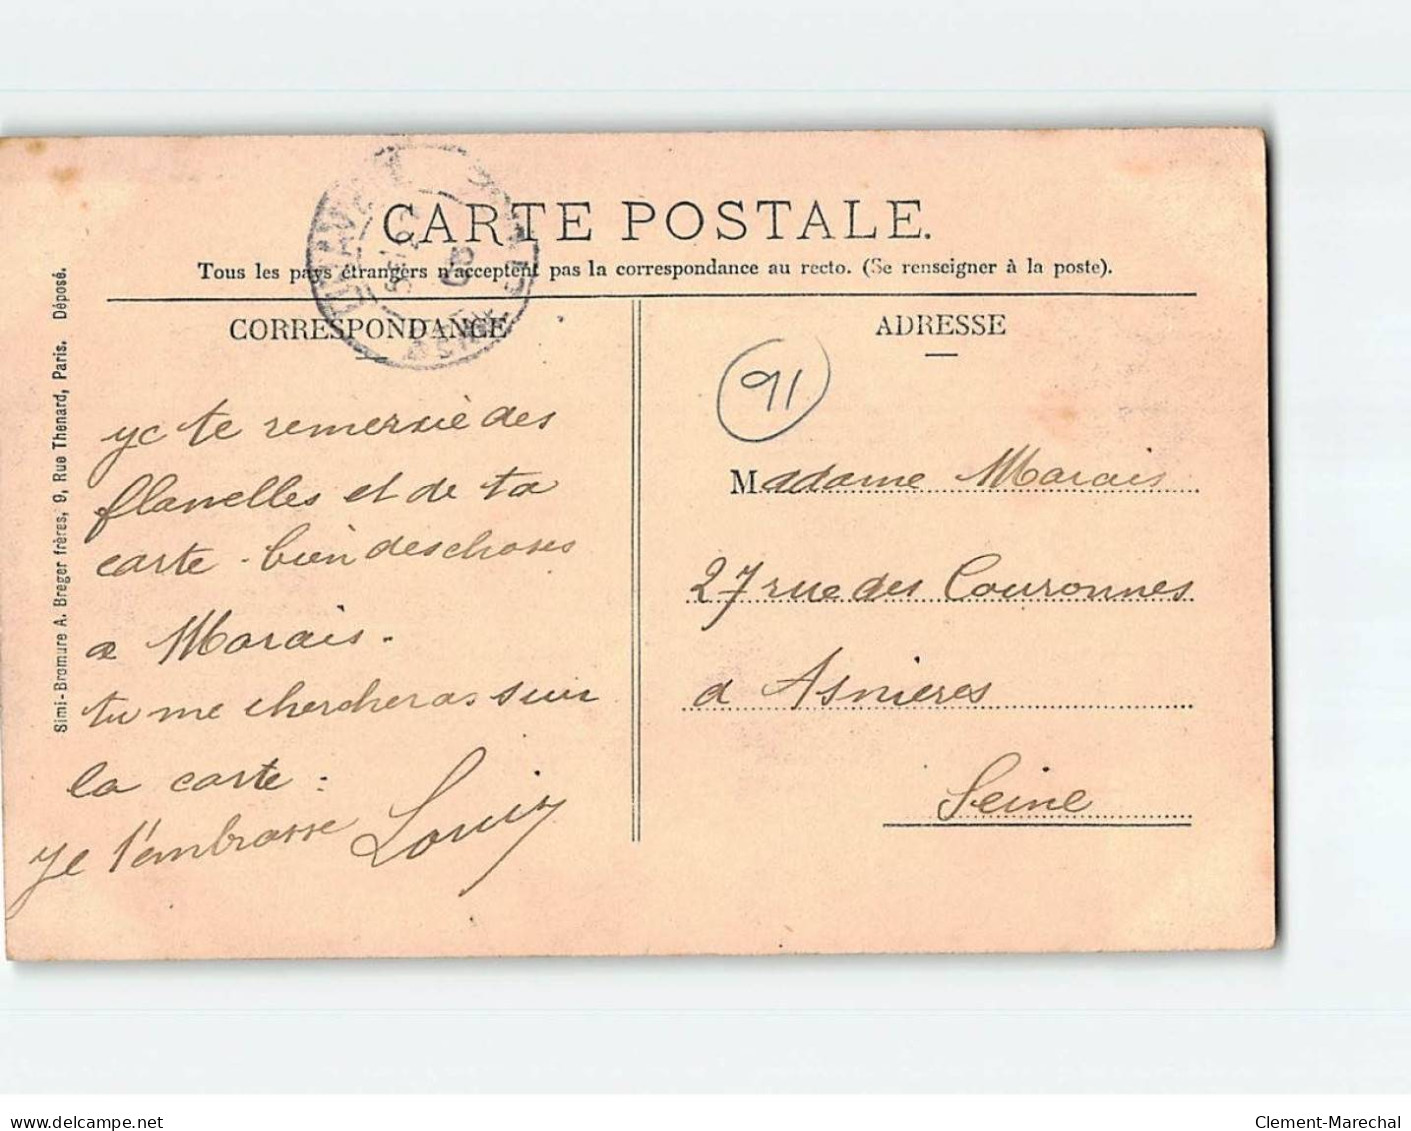 CARTE POSTALE.
Tous les pays étrangers n'acceptent pas la correspondance au recto. (Se renseigner à la poste).
CORRESPONDANCE
yc te remercie des
flanelles et de ta
carte - bien des choses
a Marais.
tu me chercheras sur
la carte :
ye t'embrasse Louis
ADRESSE
91
Madame Marais
27 rue des Couronnes
a Asnieres
Seine
Simi-Bromure A. Breger frères, 9, Rue Thenard, Paris. Déposé.
www.delcampe.net
Clement-Marechal